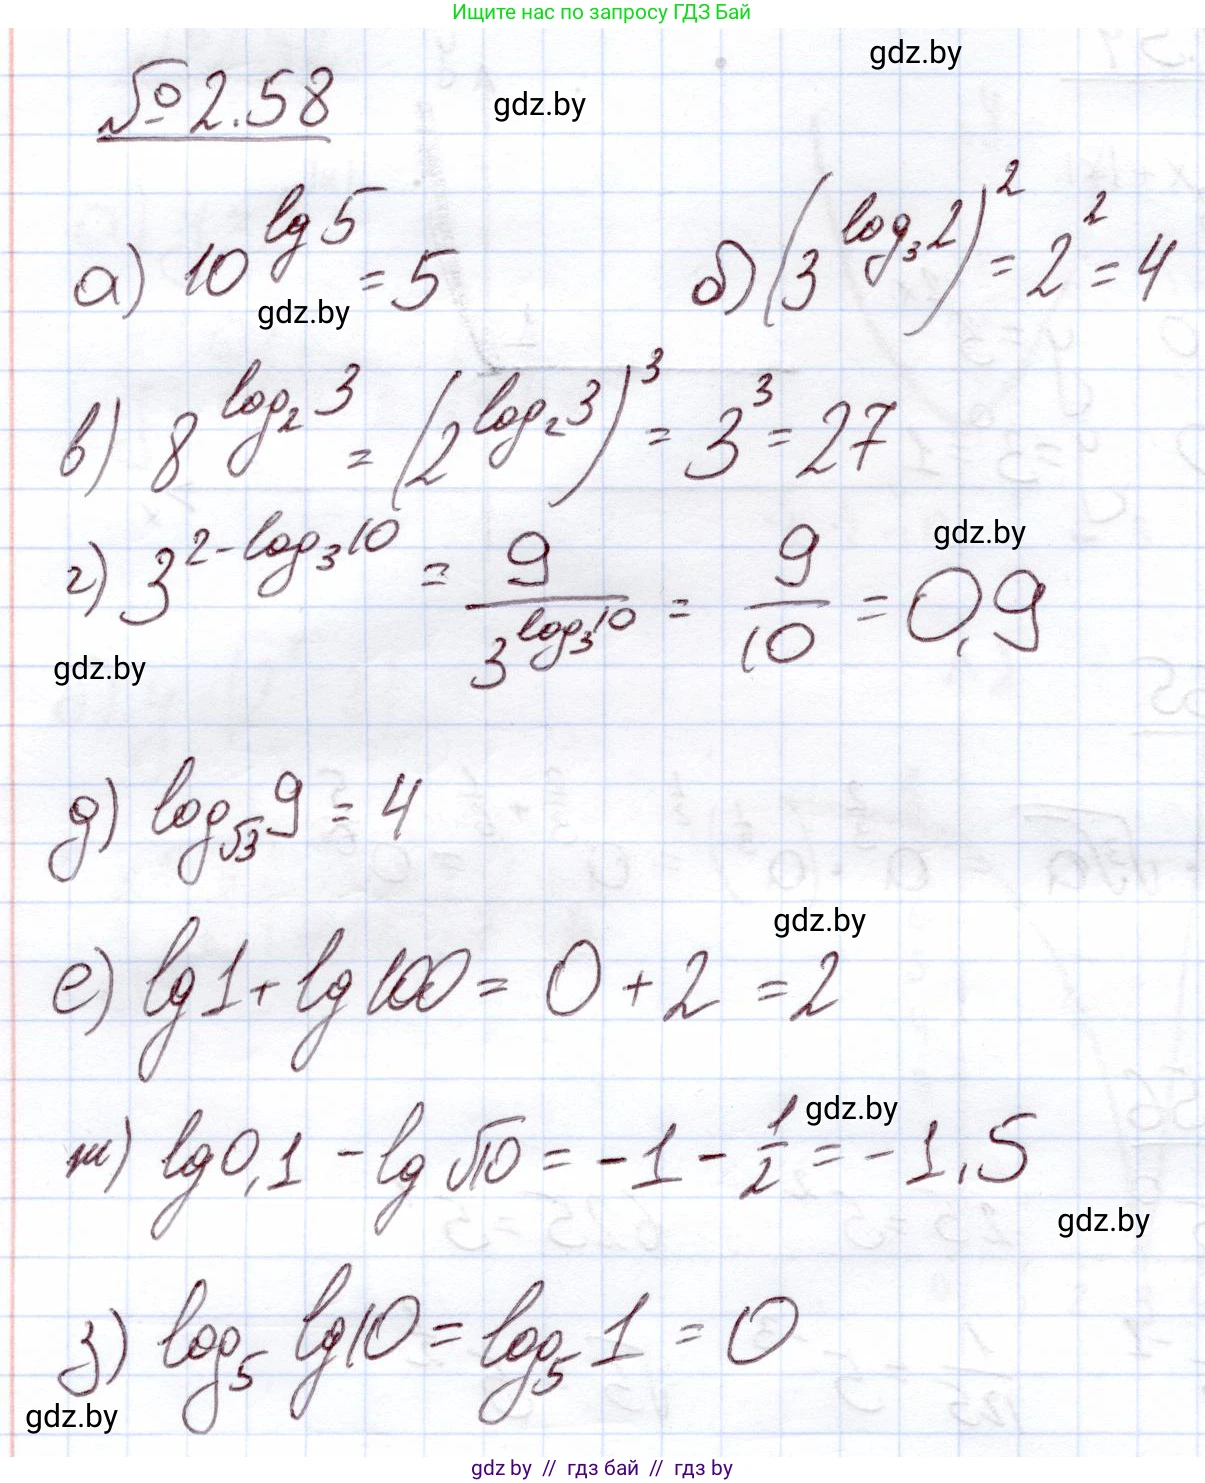 Ищите нас по запросу ГДЗ Бай
gdz.by
№ 2.58
gdz.by
а) 10^{lg 5} = 5
б) (3^{log_3 2})^2 = 2^2 = 4
gdz.by
в) 8^{log_2 3} = (2^{log_2 3})^3 = 3^3 = 27
gdz.by
г) 3^{2 - log_3 10} = 9/3^{log_3 10} = 9/10 = 0,9
gdz.by
д) log_{√3} 9 = 4
gdz.by
е) lg 1 + lg 100 = 0 + 2 = 2
gdz.by
ж) lg 0,1 - lg √10 = -1 - 1/2 = -1,5
gdz.by
з) log_5 lg 10 = log_5 1 = 0
gdz.by
gdz by // гдз бай // гдз by